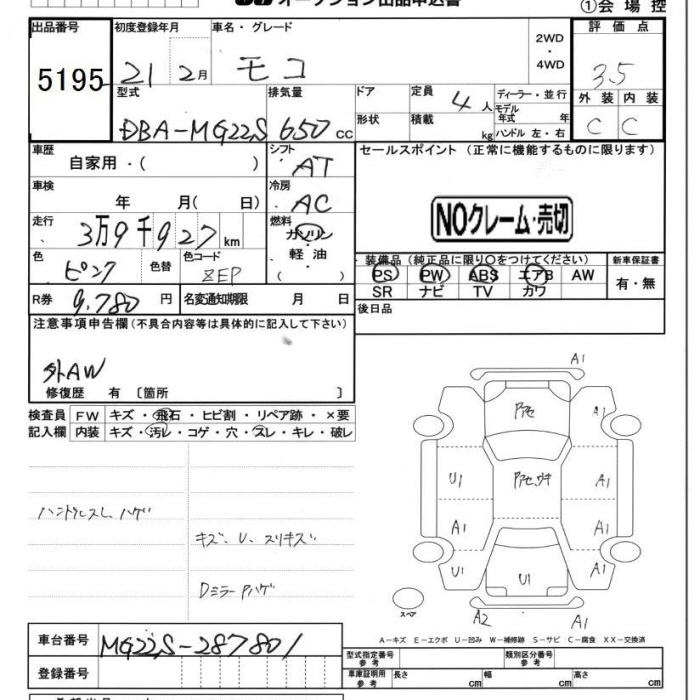 オークション出品申込書
①会場控
出品番号 初度登録年月 車名・グレード 2WD・4WD 評価点
5195 21 2月 モコ 3.5
型式 排気量 ドア 定員 4人 ディーラー・並行 外装 内装
DBA-MG22S 650cc 形状 積載 kg モデル年式 年 ハンドル 左・右 C C
車歴 シフト セールスポイント (正常に機能するものに限ります)
自家用・( ) AT
車検 冷房
年 月( 日) AC
NOクレーム・売切
走行 燃料
3万9千927km ガソリン・軽油 ( )
装備品(純正品に限り○をつけてください) 新車保証書
色 色替 色コード
ピンク ZEP
PS PW ABS エアB AW 有・無
SR ナビ TV カワ
R券 9.780円 名変通知期限 月 日
後日品
注意事項申告欄(不具合内容等は具体的に記入して下さい)
外AW
修復歴 有 〔箇所 〕
検査員 FW キズ・飛石・ヒビ割・リペア跡・×要
記入欄 内装 キズ・汚レ・コゲ・穴・スレ・キレ・破レ
ハンドルスレ ハゲ
キズ、U、スリキズ
Dミラー Pハゲ
A1
Pアセ A1
U1 Pアセ、ワキ A1
A1 A1
U1 U1 A1
スペア
A2 A1
A-キズ E-エクボ U-凹み W-補修跡 S-サビ C-腐食 XX-交換済
車台番号 MG22S-287801
登録番号
型式指定番号 参考 類別区分番号 参考
車庫証明用 参考 長さ cm 幅 cm 高さ cm